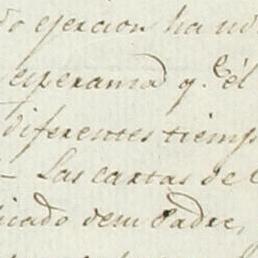 ejercion ha
esperamos q. él
diferentes tiemp
- Las cartas de
icado de mi Padre,